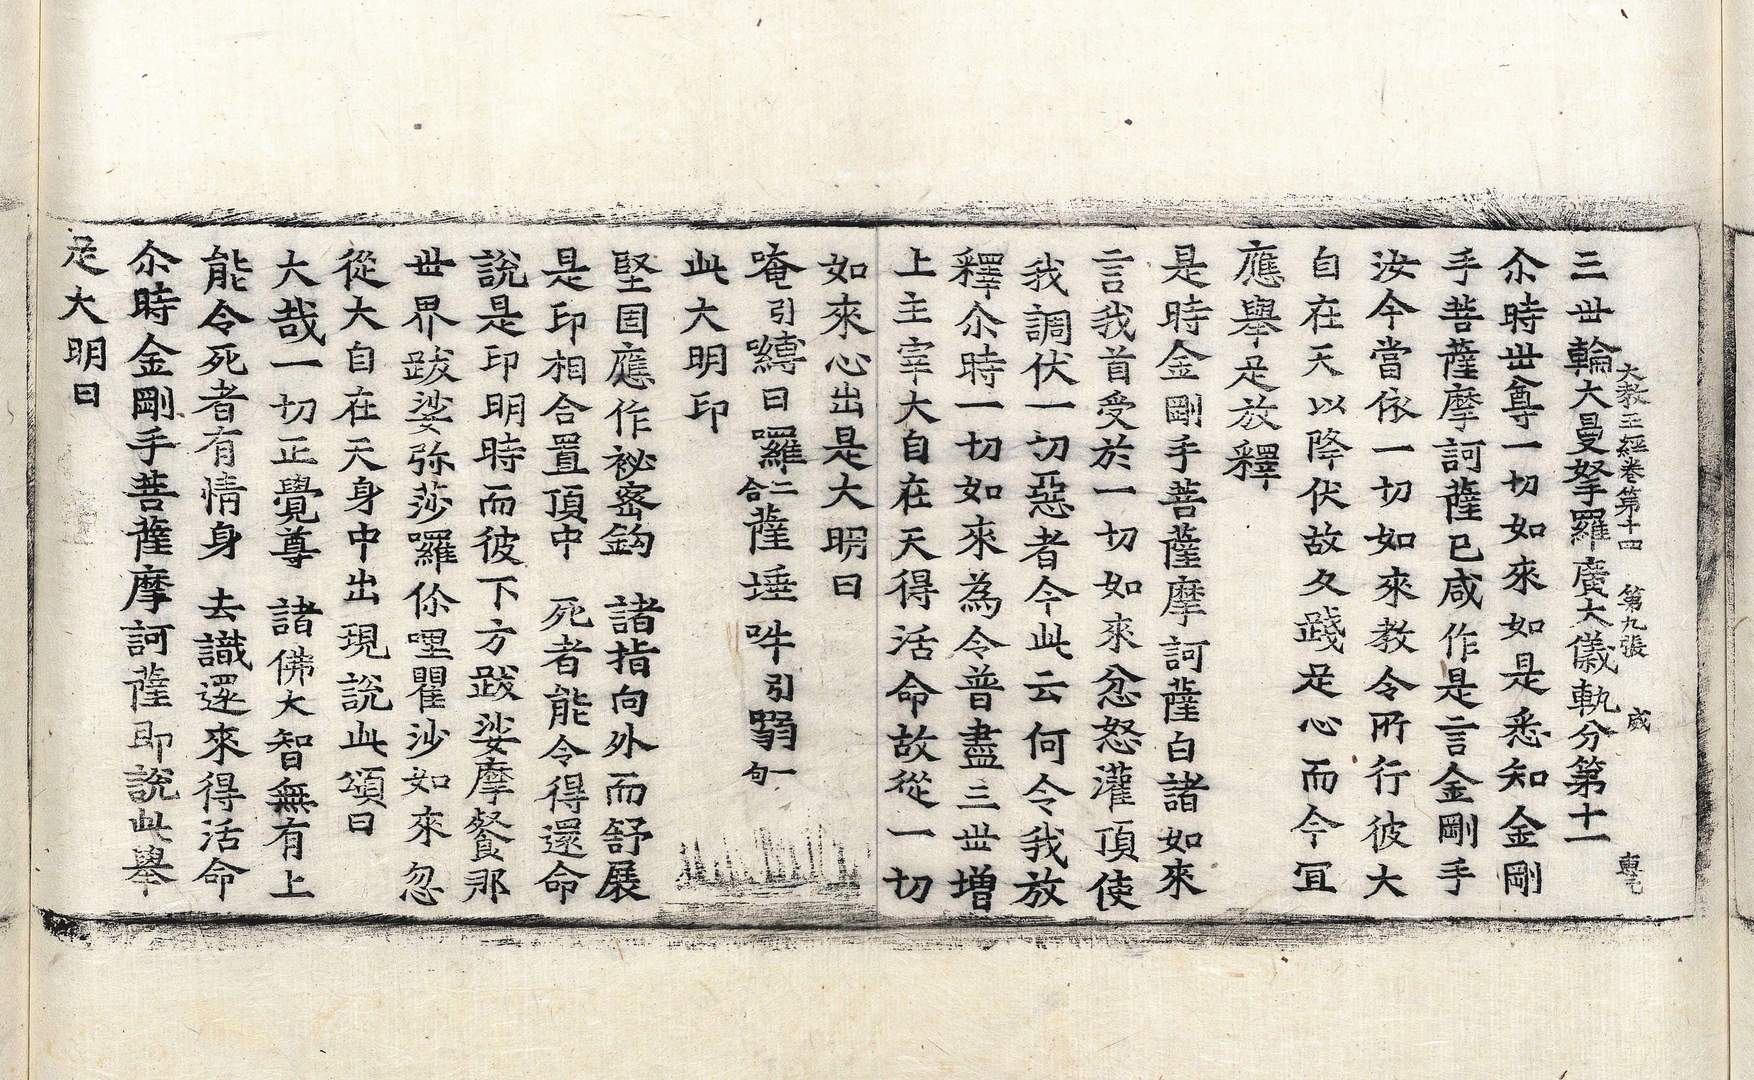 大教王經卷第十四　第九張　咸　惠元
三世輪大曼拏羅廣大儀軌分第十一
尒時世尊一切如來如是悉知金剛
手菩薩摩訶薩已咸作是言金剛手
汝今當依一切如來教令所行彼大
自在天以降伏故久踐足心而今冝
應舉足放釋
是時金剛手菩薩摩訶薩白諸如來
言我首受於一切如來忿怒灌頂使
我調伏一切惡者今此云何令我放
釋尒時一切如來為令普盡三世增
上主宰大自在天得活命故從一切
如來心出是大明曰
唵引嚩日囉二合薩埵吽引弱一句
此大明印
堅固應作祕密鈎　諸指向外而舒展
是印相合置頂中　死者能令得還命
說是印明時而彼下方跋娑摩餐那
世界跋娑弥莎囉你哩瞿沙如來忽
從大自在天身中出現說此頌曰
大哉一切正覺尊　諸佛大智無有上
能令死者有情身　去識還來得活命
尒時金剛手菩薩摩訶薩即說此舉
足大明曰